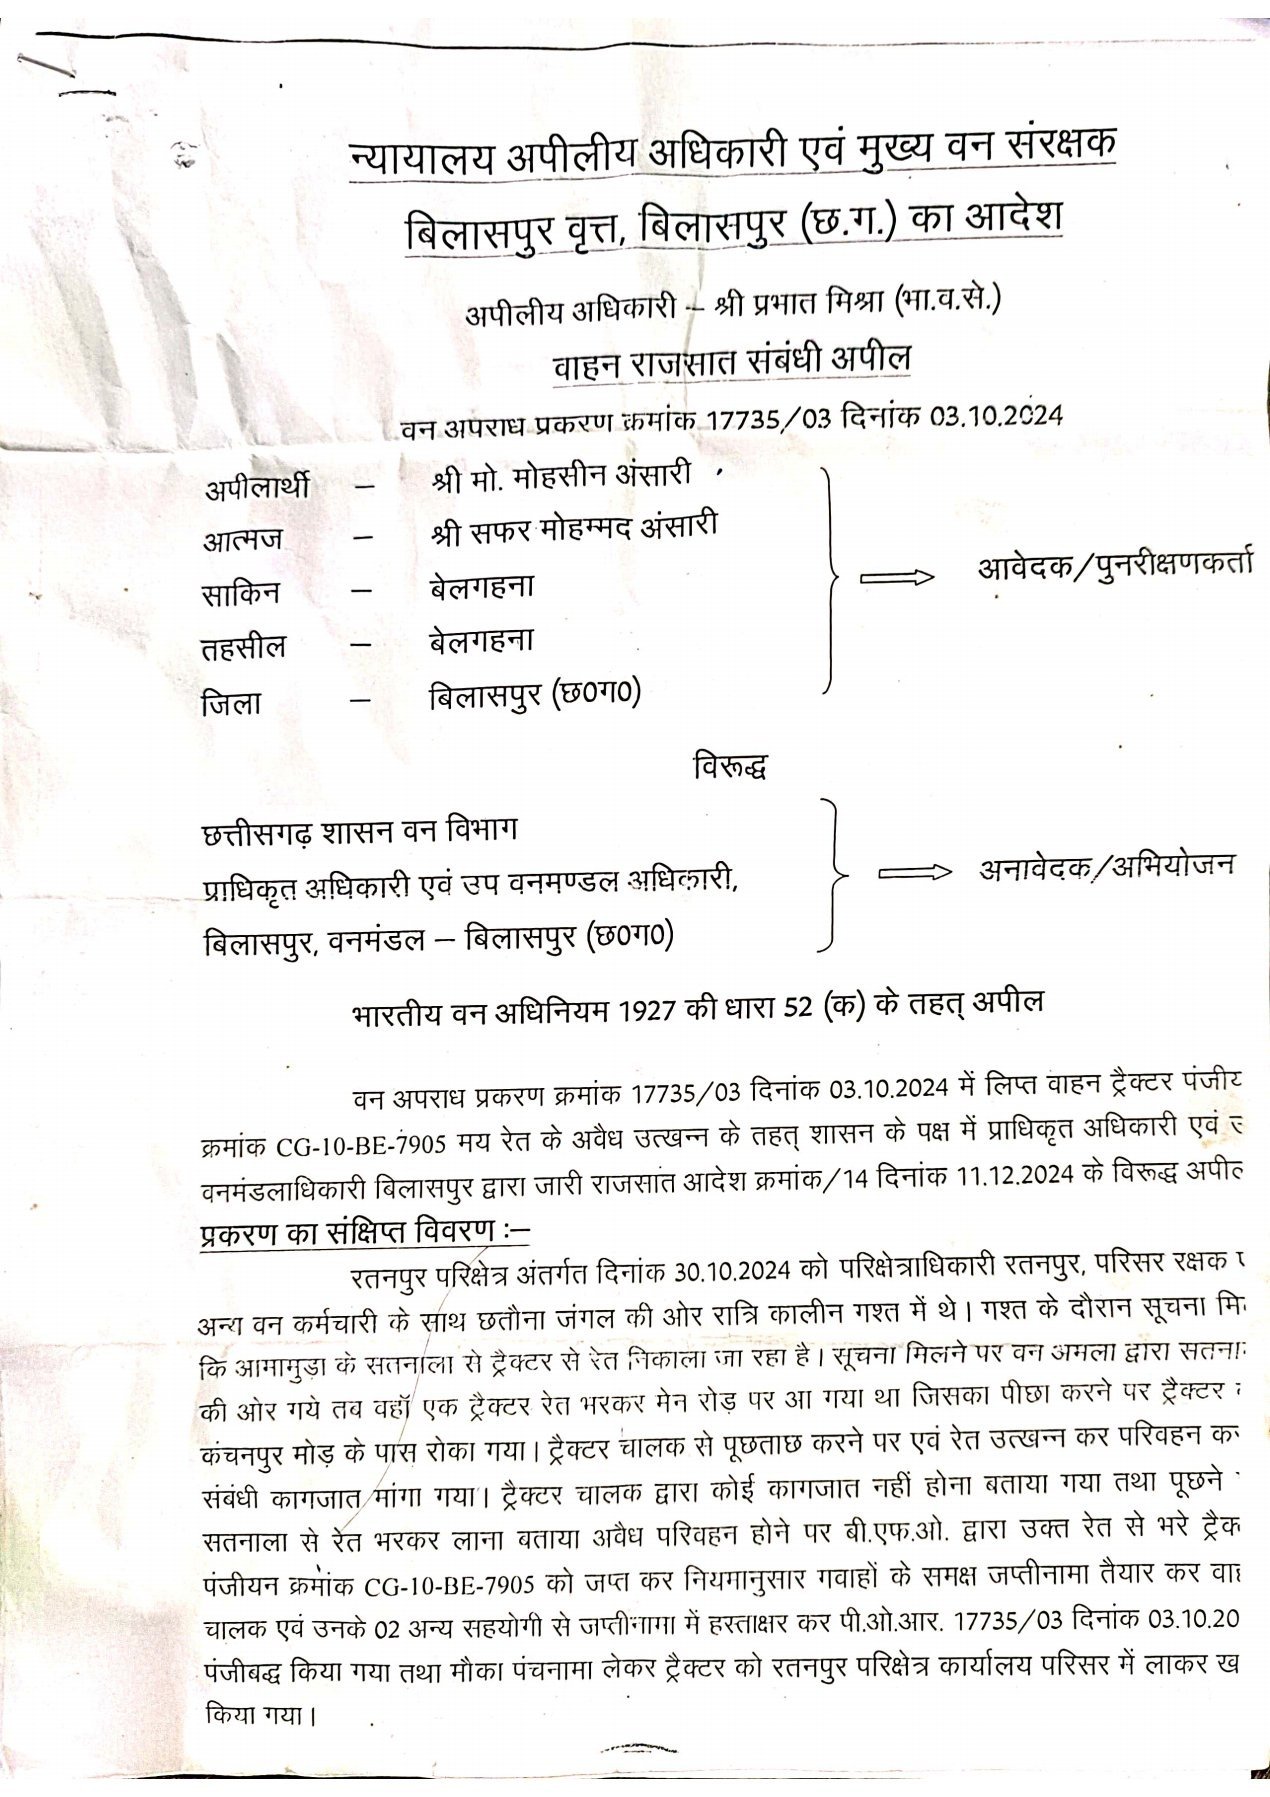 न्यायालय अपीलीय अधिकारी एवं मुख्य वन संरक्षक
बिलासपुर वृत्त, बिलासपुर (छ.ग.) का आदेश
अपीलीय अधिकारी – श्री प्रभात मिश्रा (भा.व.से.)
वाहन राजसात संबंधी अपील
वन अपराध प्रकरण क्रमांक 17735/03 दिनांक 03.10.2024
अपीलार्थी – श्री मो. मोहसीन अंसारी
आत्मज – श्री सफर मोहम्मद अंसारी
साकिन – बेलगहना
तहसील – बेलगहना
जिला – बिलासपुर (छ0ग0)
आवेदक/पुनरीक्षणकर्ता
विरूद्ध
छत्तीसगढ़ शासन वन विभाग
प्राधिकृत अधिकारी एवं उप वनमण्डल अधिकारी,
बिलासपुर, वनमंडल – बिलासपुर (छ0ग0)
अनावेदक/अभियोजन
भारतीय वन अधिनियम 1927 की धारा 52 (क) के तहत् अपील
वन अपराध प्रकरण क्रमांक 17735/03 दिनांक 03.10.2024 में लिप्त वाहन ट्रैक्टर पंजीय
क्रमांक CG-10-BE-7905 मय रेत के अवैध उत्खन्न के तहत् शासन के पक्ष में प्राधिकृत अधिकारी एवं
वनमंडलाधिकारी बिलासपुर द्वारा जारी राजसात आदेश क्रमांक/14 दिनांक 11.12.2024 के विरूद्ध अपील
प्रकरण का संक्षिप्त विवरण :–
रतनपुर परिक्षेत्र अंतर्गत दिनांक 30.10.2024 को परिक्षेत्राधिकारी रतनपुर, परिसर रक्षक
अन्य वन कर्मचारी के साथ छतौना जंगल की ओर रात्रि कालीन गश्त में थे। गश्त के दौरान सूचना मि
कि आमामुड़ा के सतनाला से ट्रैक्टर से रेत निकाला जा रहा है। सूचना मिलने पर वन अमला द्वारा सतना
की ओर गये तब वहॉ एक ट्रैक्टर रेत भरकर मेन रोड़ पर आ गया था जिसका पीछा करने पर ट्रैक्टर
कंचनपुर मोड़ के पास रोका गया। ट्रैक्टर चालक से पूछताछ करने पर एवं रेत उत्खन्न कर परिवहन कर
संबंधी कागजात मांगा गया। ट्रैक्टर चालक द्वारा कोई कागजात नहीं होना बताया गया तथा पूछने
सतनाला से रेत भरकर लाना बताया अवैध परिवहन होने पर बी.एफ.ओ. द्वारा उक्त रेत से भरे ट्रैक
पंजीयन क्रमांक CG-10-BE-7905 को जप्त कर नियमानुसार गवाहों के समक्ष जप्तीनामा तैयार कर वाह
चालक एवं उनके 02 अन्य सहयोगी से जप्तीनामा में हस्ताक्षर कर पी.ओ.आर. 17735/03 दिनांक 03.10.20
पंजीबद्ध किया गया तथा मौका पंचनामा लेकर ट्रैक्टर को रतनपुर परिक्षेत्र कार्यालय परिसर में लाकर ख
किया गया।